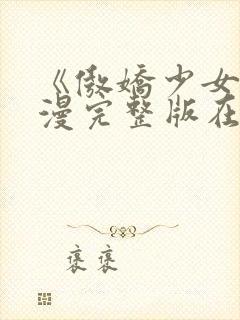 《傲娇少女
漫完整版在
褒褒